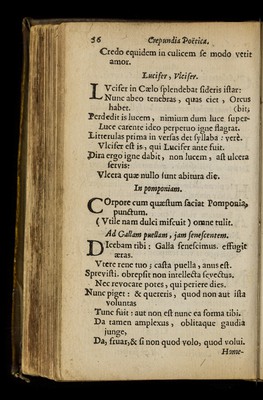 56 Crepundia Poëtica.
Credo equidem in culicem se modo vetit
amor.
Lucifer, Vlcifer.
LVcifer in Cælo splendebat sideris istar:
Nunc abeo tenebras, quas ciet, Orcus
habet. (bit,
Perdedit is lucem, nimium dum luce super-
Luce carente ideo perpetuo igne flagrat.
Litterulas prima in versas det syllaba: verè.
Vlcifer est is, qui Lucifer ante fuit.
Dira ergo igne dabit, non lucem, ast ulcera
servis:
Vlcera quæ nullo sunt abitura die.
In pomponiam.
COrpore cum quæstum faciat Pomponia,
punctum.
(Vtile nam dulci miscuit) omne tulit.
Ad Gallam puellam, jam senescentem.
DIcebam tibi: Galla senescimus. effugit
ætas.
Vtere rene tuo; casta puella, anus est.
Sprevisti. obrepsit non intellecta senectus.
Nec revocare potes, qui periere dies.
Nunc piget: & quereris, quod non aut ista
voluntas
Tunc fuit: aut non est nunc ea forma tibi.
Da tamen amplexus, oblitaque gaudia
junge,
Da, fruar, & si non quod volo, quod volui.
Home-